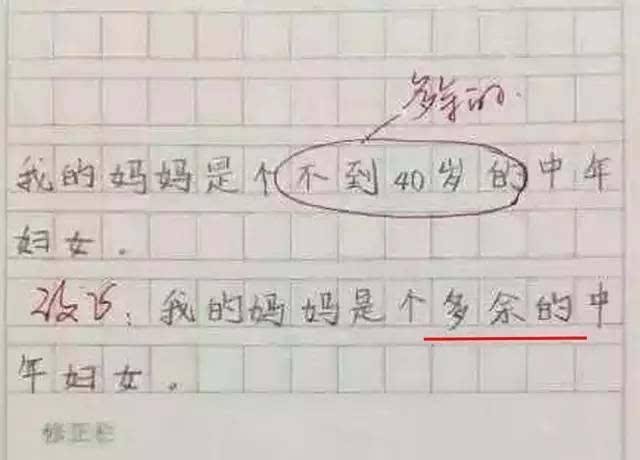 多余的.
我的妈妈是个不到40岁的中年
妇女。
改巧：我的妈妈是个多余的中
年妇女。
修正栏